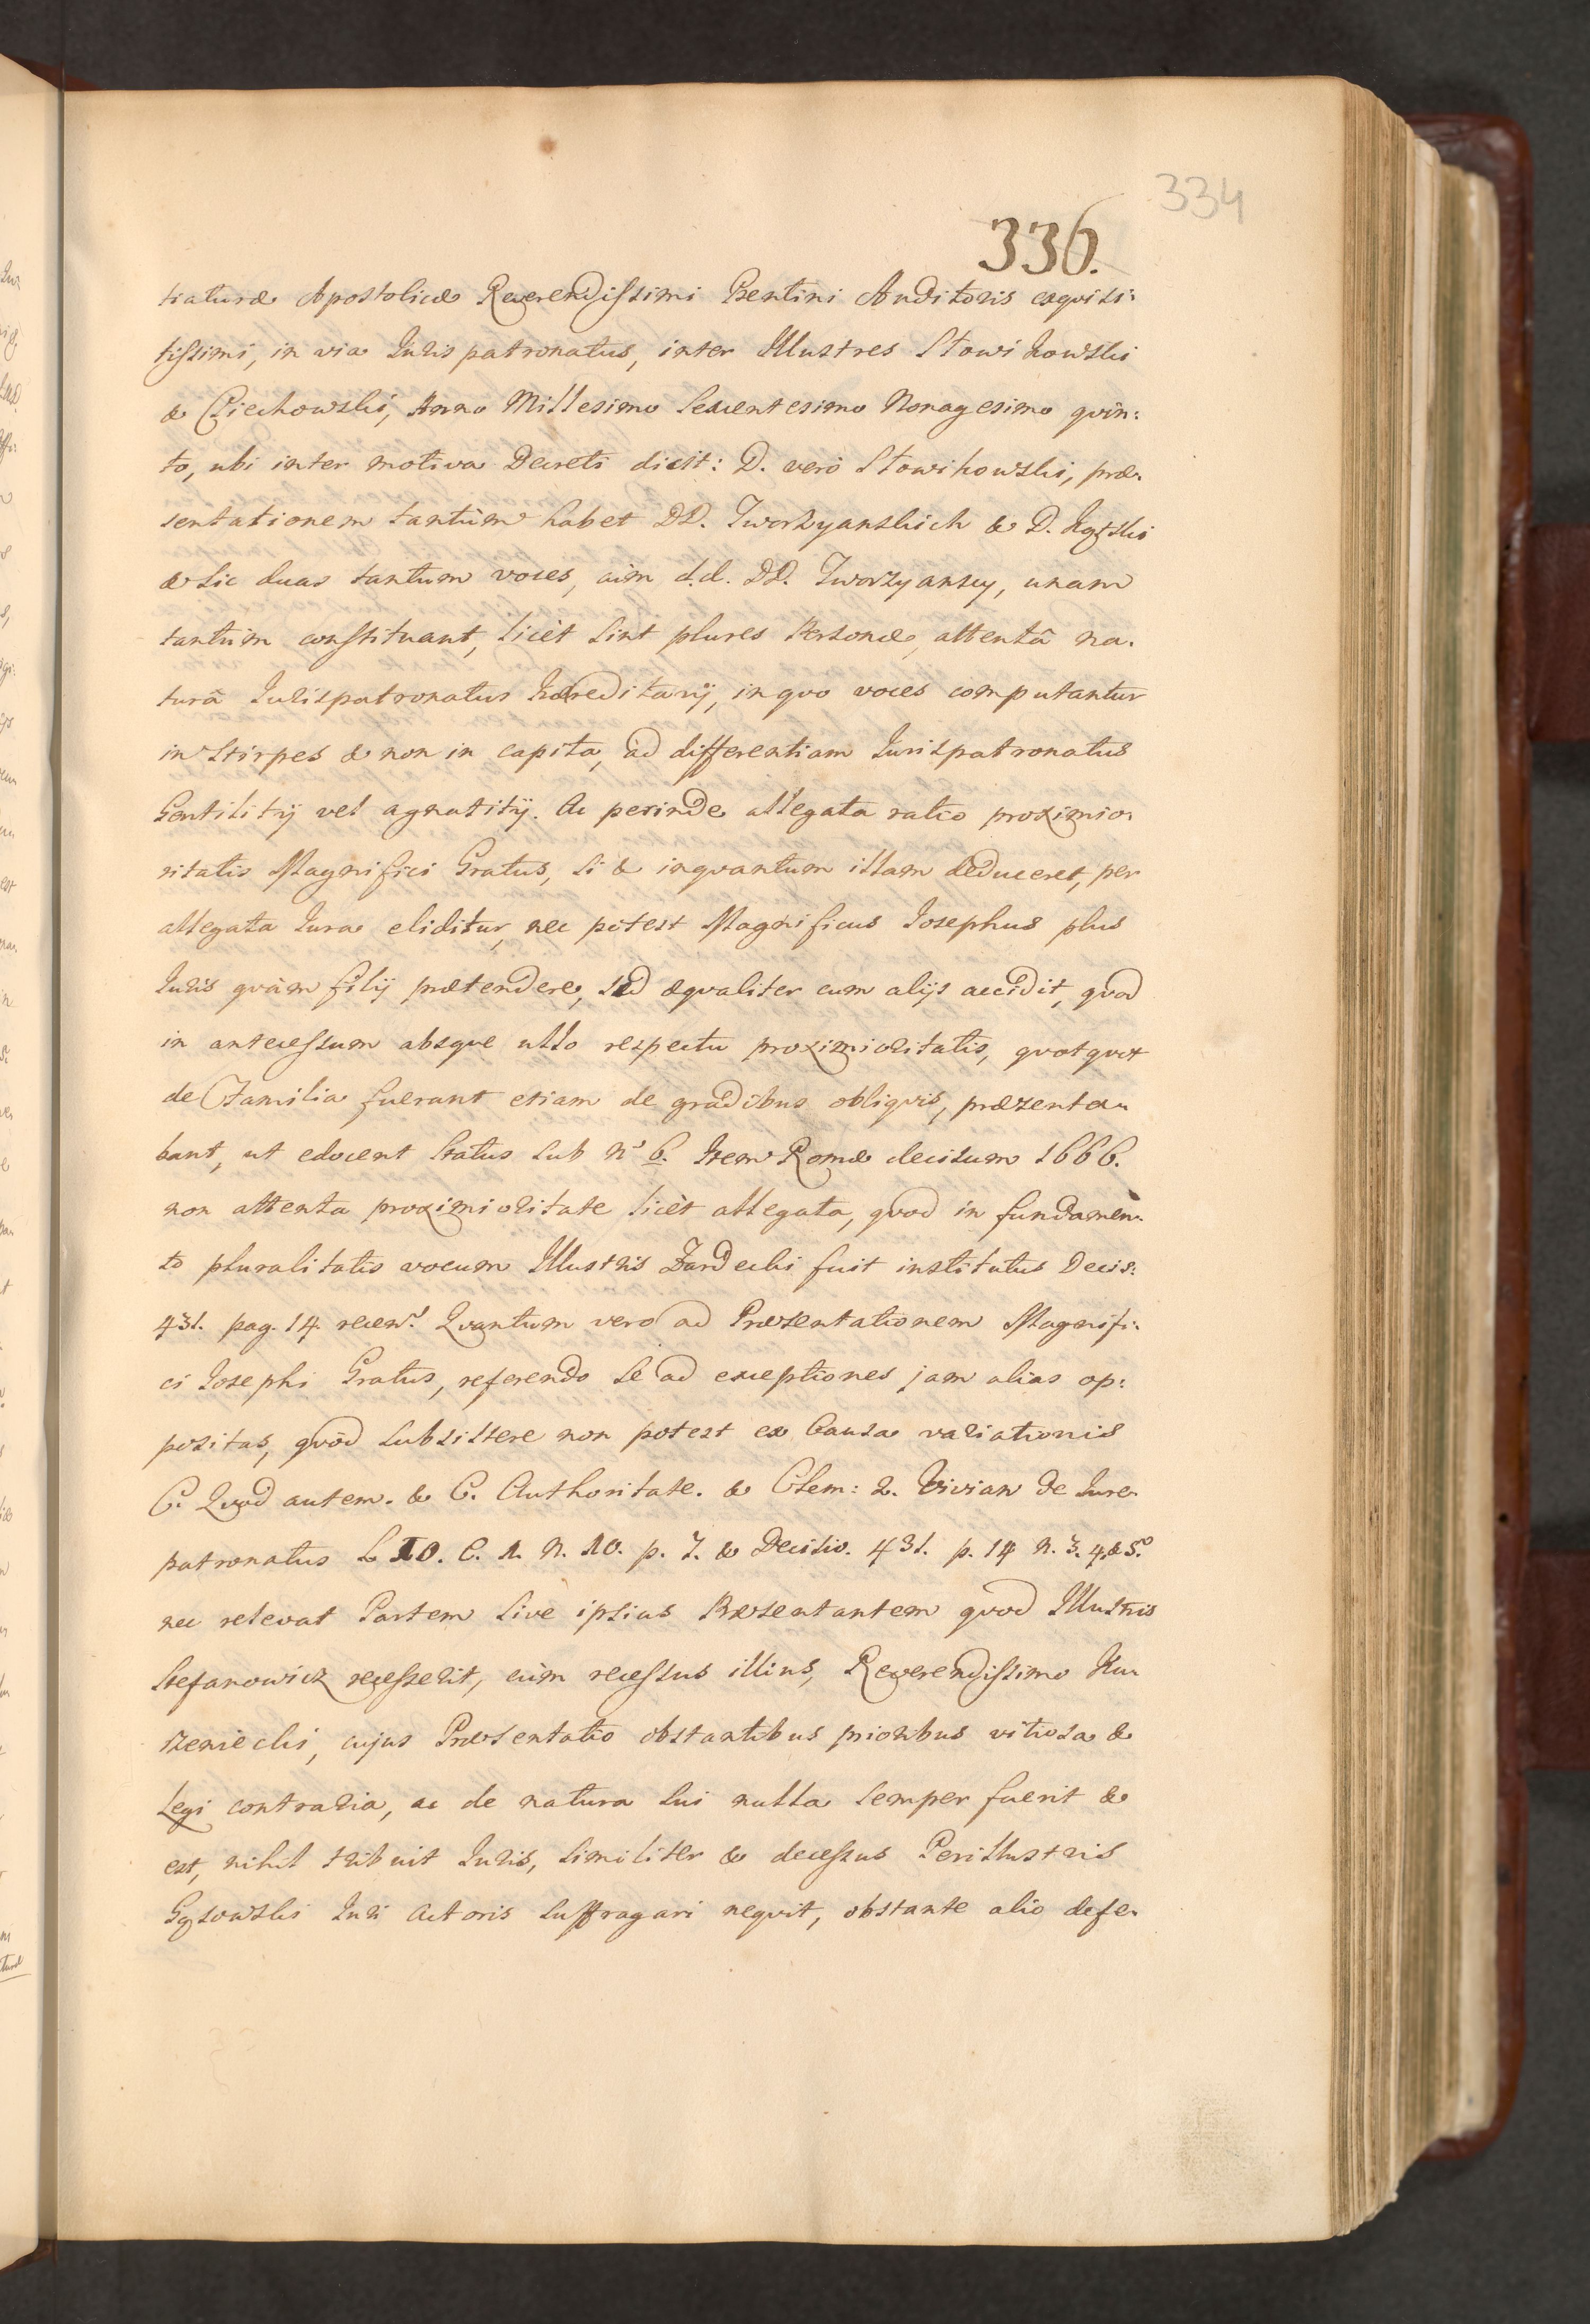 334
336.
tiaturæ Apostolicæ Reverendissimi Prentini Auditoris exquisi:
tissimi, in via Iuris patronatus, inter Illustres Stowikowski
& Ciechowski, Anno Millesimo Sexcentesimo Nonagesimo quin:
to, ubi inter motiva Decreti dicit: D. verò Stowikowski, præ-
sentationem tantùm habet DD. Tworzyanskich & D. Kątski
& sic duas tantum voces, cùm d.d. DD. Tworzyanscy, unam
tantùm constituant, licèt sint plures Personæ, attentâ na-
turâ Iurispatronatus Hæreditarij, in quo voces computantur
in Stirpes & non in capita, ad differentiam Iurispatronatus
Gentilitij vel agnatitij. Ac perinde allegata ratio proximio-
ritatis Magnifici Gratus, si & inquantum illam deduceret, per
allegata Iura eliditur, nec potest Magnificus Iosephus plus
Iuris quàm filij prætendere, sed æqualiter cum alijs accidit, quod
in antecessum absque ullo respectu proximioritatis, quotquot
de Familia fuerant etiam de gradibus obliquis, præsenta-
bant, ut edocent Status sub N° 6. Item Romæ decisum 1666.
non attenta proximioritate licèt allegata, quod in fundamen-
to pluralitatis vocum Illustris Zardecki fuit institutus Decis:
431. pag. 14. recen. Quantum vero ad Præsentationem Magnifi:
ci Iosephi Gratus, referendo se ad exceptiones jam alias op:
positas, quòd subsistere non potest ex Causa variationis
C. Quod autem. & C. Authoritate. & Clem: 2. Vivian de Iure
patronatus L 10. C. 1. N. 10. p. 7. & Decisio. 431. p. 14 N. 3. 4 & 5°
nec relevat Partem sive ipsius Præsentantem quod Illustris
Stefanowicz recesserit, cùm recessus illius, Reverendissimo Ku-
rzeniecki, cujus Præsentatio obstantibus prioribus vitiosa &
Legi contraria, ac de natura sui nulla semper fuerit &
est, nihil tribuit Iuris, similiter & decessus Perillustris
Gąsowski Iuri Actoris suffragari nequit, obstante alio defe-